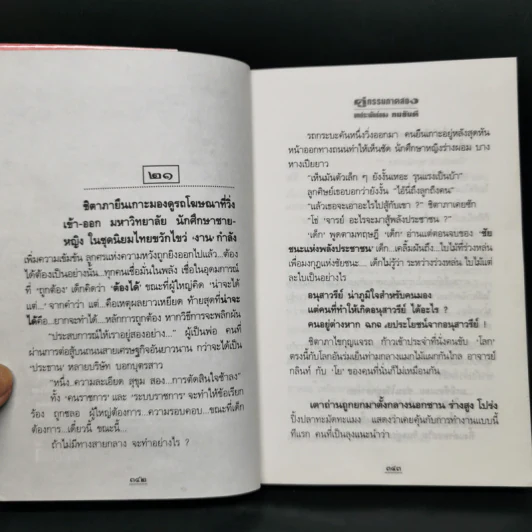 ๒๑
ชิดาภายืนเกาะมองดูรถโฆษณาที่วิ่ง
เข้า-ออก มหาวิทยาลัย นักศึกษาชาย-
หญิง ในชุดนิยมไทยขวักไขว่ ‘งาน’ กำลัง
เพิ่มความเข้มข้น ลูกศรแห่งความหวังถูกยิงออกไปแล้ว...ต้อง
ได้ต้องเป็นอย่างนั้น...ทุกคนเชื่อมั่นในพลัง เชื่อในอุดมการณ์
ที่ ‘ถูกต้อง’ เด็กคิดว่า ‘ต้องได้’ ขณะที่ผู้ใหญ่คิด ‘น่าจะได้
แต่...’ จากคำว่า แต่...คือเหตุผลยาวเหยียด ท้ายสุดที่น่าจะ
ได้คือ...ยากจะทำได้...หลักการถูกต้อง หากวิธีการจะพลิกผัน
“ประสบการณ์ให้เราอยู่สองอย่าง...” ผู้เป็นพ่อ คนที่
ผ่านการต่อสู้บนถนนสายเศรษฐกิจอันยาวนาน กว่าจะได้เป็น
‘ประธาน’ หลายบริษัท บอกบุตรสาว
“หนึ่ง..ความละเอียด สุขุม สอง...การตัดสินใจช้าลง”
ทั้ง ‘คนราชการ’ และ ‘ระบบราชการ’ จะทำให้ข้อเรียก
ร้อง ถูกชลอ ผู้ใหญ่ต้องการ...ความรอบคอบ...ขณะที่เด็ก
ต้องการ...เดี๋ยวนี้ ขณะนี้...
ถ้าไม่มีทางสายกลาง จะทำอย่างไร ?
๓๔๒
รถกระบะคันหนึ่งวิ่งออกมา คนยืนเกาะอยู่หลังสุดหัน
หน้าออกทางถนนทำให้เห็นชัด นักศึกษาหญิงร่างผอม บาง
หางเปียยาว
“เห็นมันตัวเล็ก ๆ ยังงั้นเหอะ รุนแรงเป็นบ้า”
ลูกศิษย์เธอบอกว่ายังงั้น “ไอ้นี่ถึงลูกถึงคน”
“แล้วเธอจะเอาอะไรไปสู้กับเขา ?” ชิดาภาเคยซัก
“โธ่ ‘จารย์ อะไรจะมาสู้พลังประชาชน ?”
‘เด็ก’ พูดตามทฤษฎี ‘เด็ก’ อ่านแต่ตอนจบของ ‘ชัย
ชนะแห่งพลังประชาชน’ เด็ก..เคลิ้มฝันถึง...ใบไม้ที่ร่วงหล่น
เพื่อมงกุฎแห่งชัยชนะ... เด็กไม่รู้ว่า ระหว่างร่วงหล่น ใบไม้แต่
ละใบเป็นอย่างไร
อนุสาวรีย์ น่าภูมิใจสำหรับคนมอง
แต่คนที่ทำให้เกิดอนุสาวรีย์ ได้อะไร ?
คนอยู่ต่างหาก ฉกฉวยประโยชน์จากอนุสาวรีย์
ชิดาภาไขกุญแจรถ ก้าวเข้าประจำที่นั่งคนขับ ‘โลก’
ตรงนี้กับโลกอันร่มเย็นท่ามกลางแมกไม้แผกกันไกล อาจารย์
กลินท์ กับ ‘โย’ ของคนที่นั่นก็ไม่เหมือนกัน
เตาถ่านถูกยกมาตั้งกลางนอกชาน ร่างสูง โปร่ง
ปิ้งปลาทะมัดทะแมง แสดงว่าเคยคุ้นกับการทำงานแบบนี้
ที่แรก คนที่เป็นลุงแนะนำว่า
๓๔๓